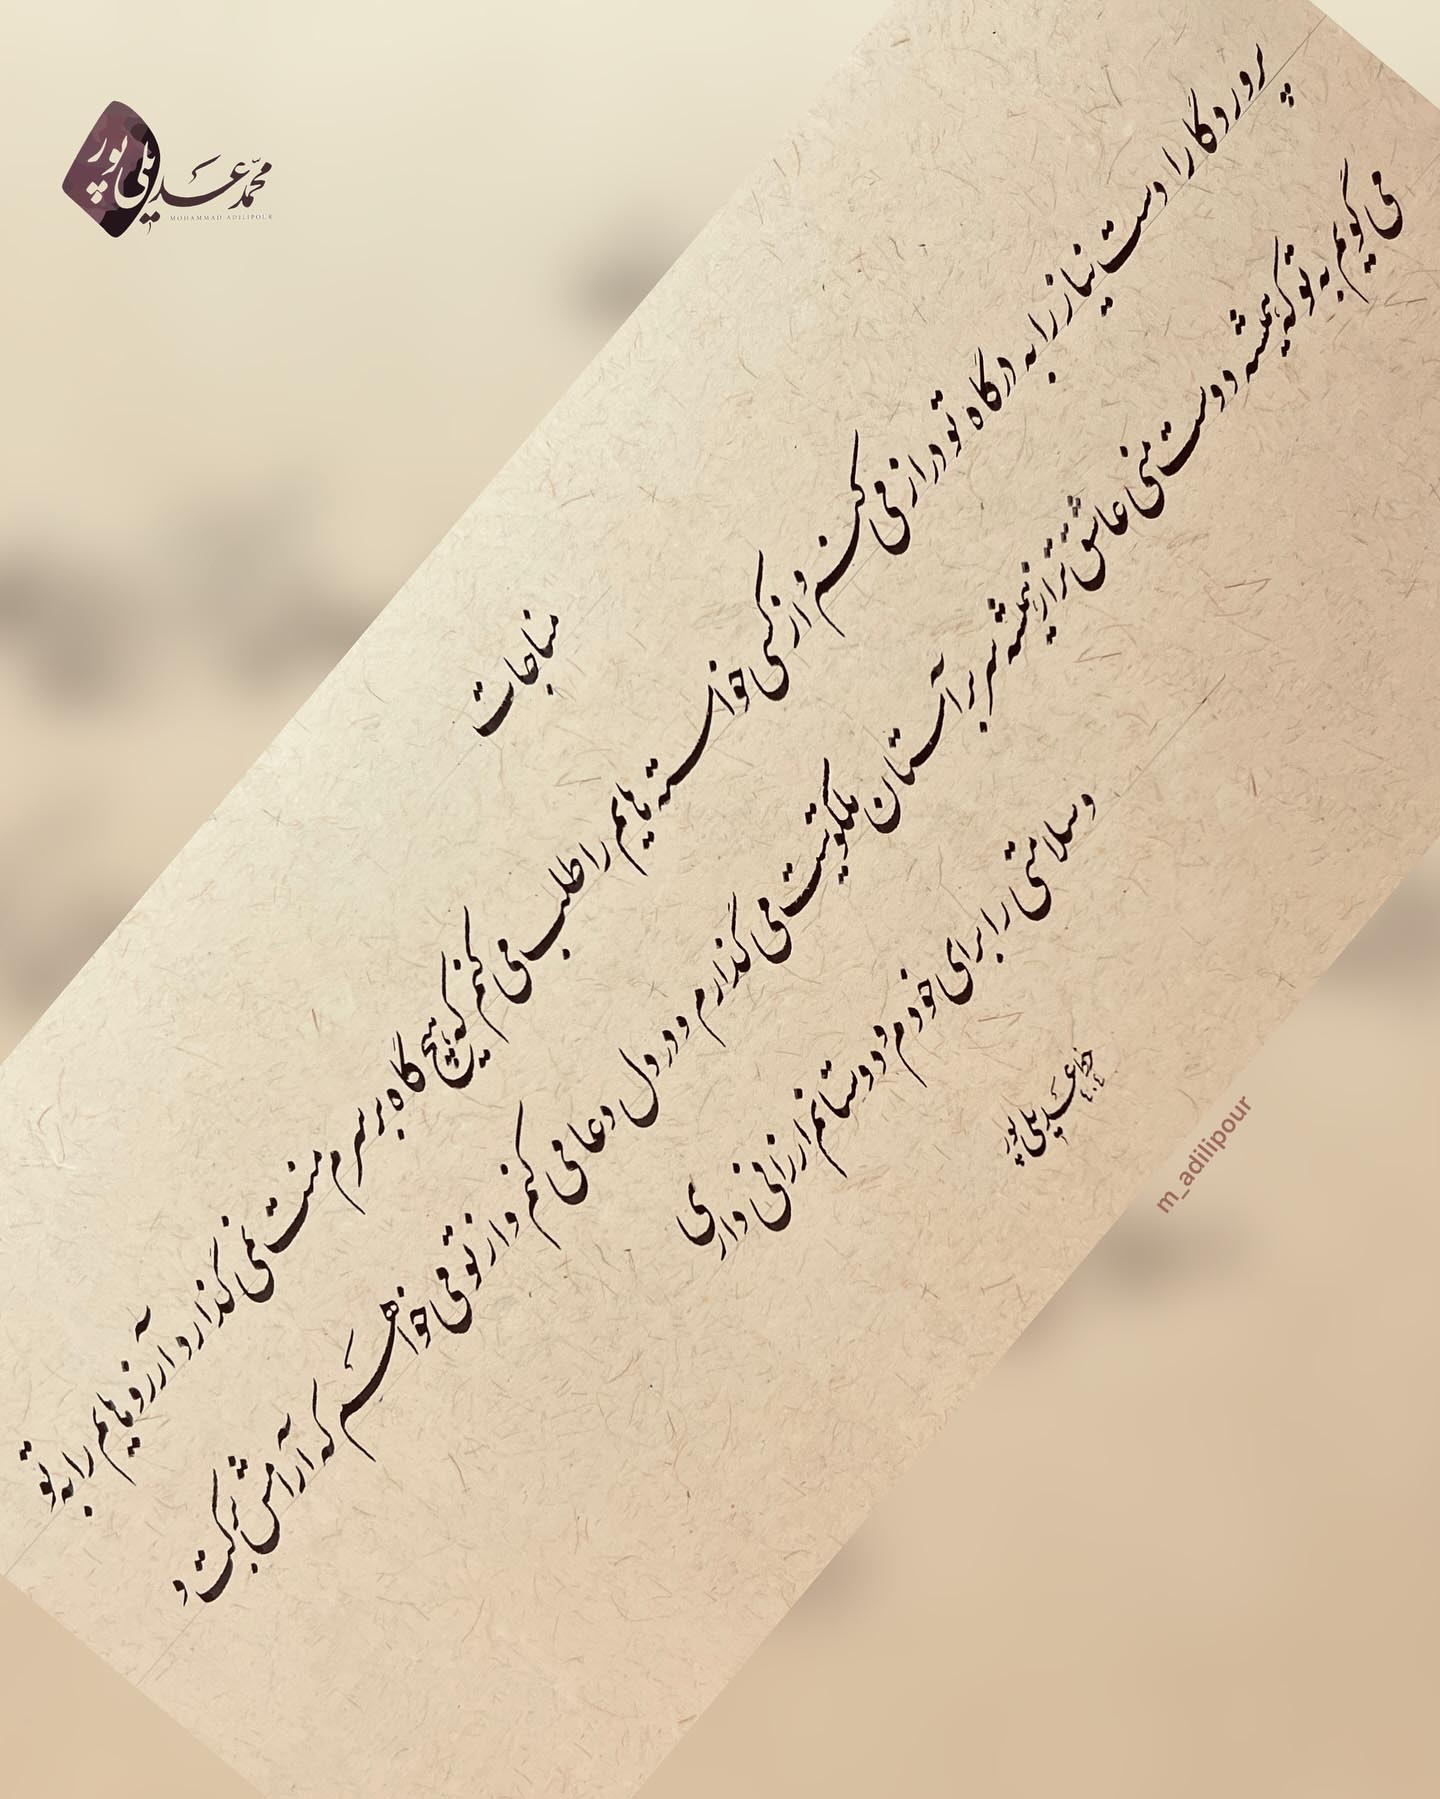 محمد عدیلی پور
MOHAMMAD ADILIPOUR
مناجات
پروردگارا دست نیاز را به درگاه تو دراز می کنم و از کسی خواسته هایم را طلب می کنم که هیچ گاه بر سرم منت نمی گذارد و آرزوهایم را به تو
می گویم به تو که همیشه دوست منی عاشق تر از همیشه سر بر آستان ملکوتیت می گذارم و در دل دعا می کنم و از تو می خواهم که آرامش برکت و
و سلامتی را برای خودم و دوستانم ارزانی داری
خط عدیلی پور
۱۴۰۴
m_adilipour